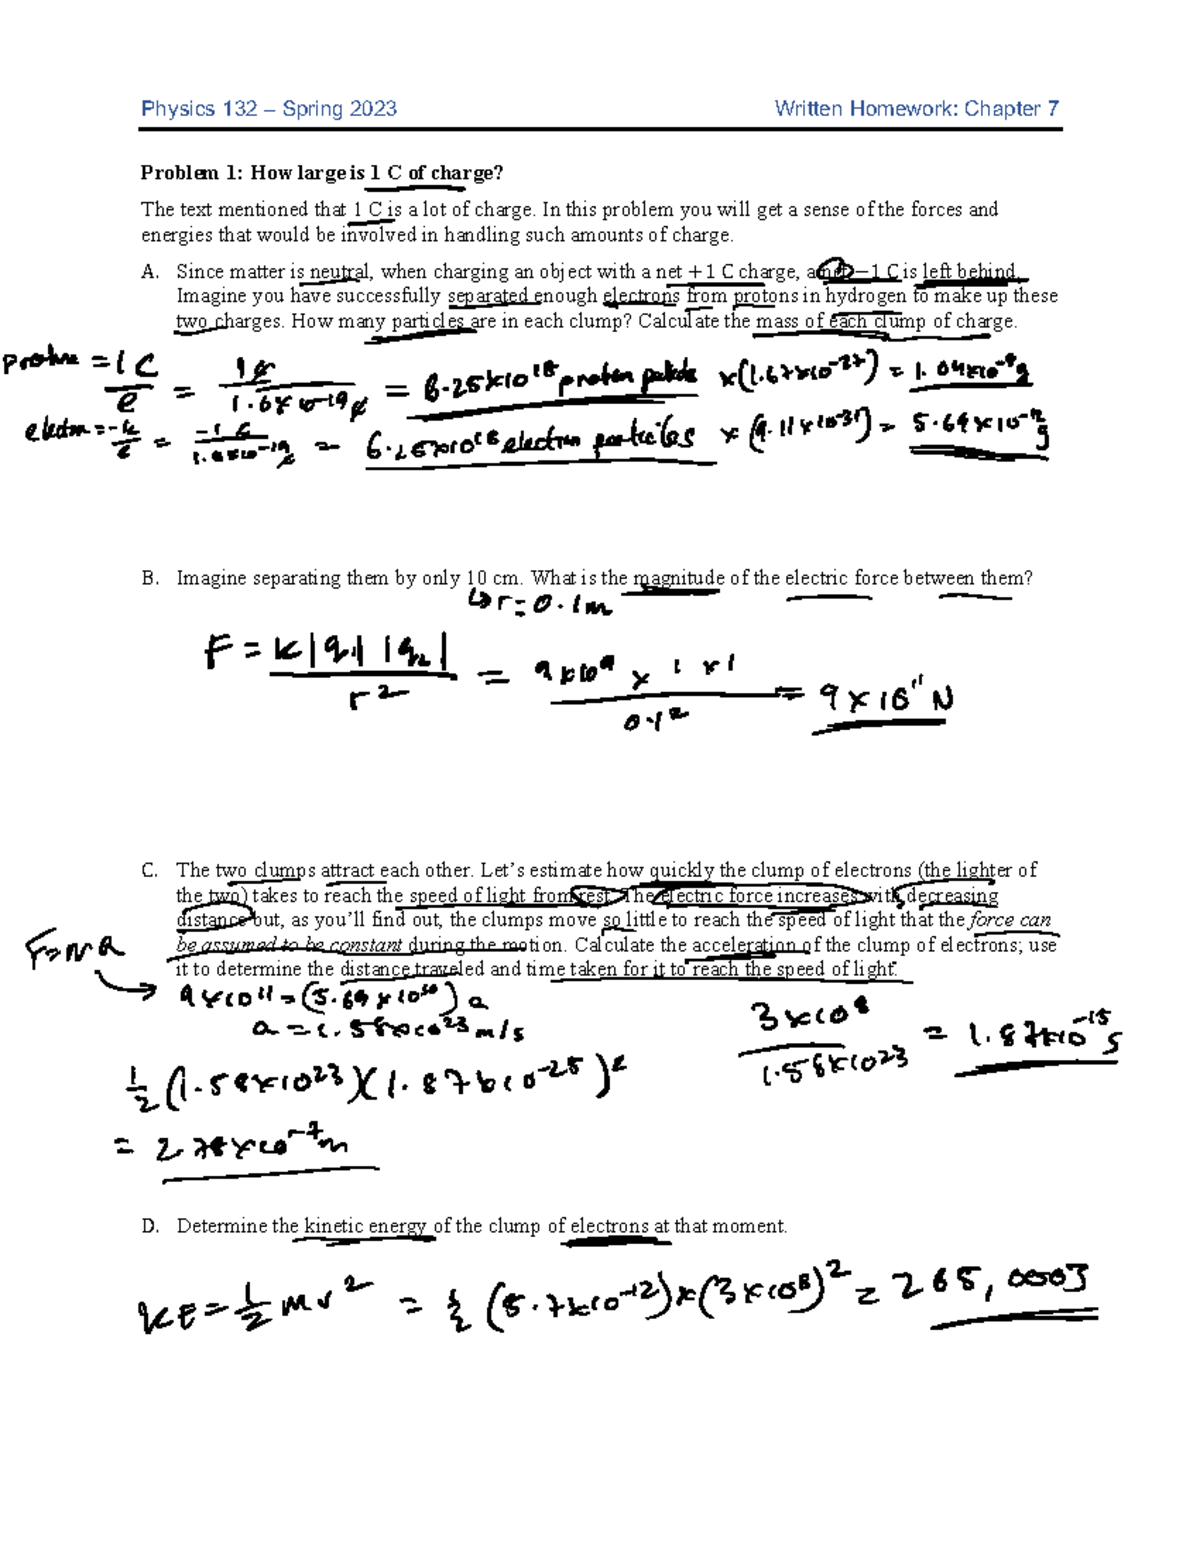 Physics 132 – Spring 2023 Written Homework: Chapter 7
Problem 1: How large is 1 C of charge?
The text mentioned that 1 C is a lot of charge. In this problem you will get a sense of the forces and
energies that would be involved in handling such amounts of charge.
A. Since matter is neutral, when charging an object with a net +1 C charge, a net −1 C is left behind.
Imagine you have successfully separated enough electrons from protons in hydrogen to make up these
two charges. How many particles are in each clump? Calculate the mass of each clump of charge.
= 1 C / e = 1 C / 1.6 x 10^-19 C = 6.25x10^18 proton x(1.67x10^-27) = 1.04x10^-8 g
= 6.25x10^18 electron particles x (9.11x10^-31) = 5.69x10^-12 g
B. Imagine separating them by only 10 cm. What is the magnitude of the electric force between them?
↳ r = 0.1m
F = k|q1| |q2| / r^2 = 9x10^9 x 1 x 1 / 0.1^2 = 9 x 10^11 N
C. The two clumps attract each other. Let’s estimate how quickly the clump of electrons (the lighter of
the two) takes to reach the speed of light from rest. The electric force increases with decreasing
distance but, as you’ll find out, the clumps move so little to reach the speed of light that the force can
be assumed to be constant during the motion. Calculate the acceleration of the clump of electrons; use
it to determine the distance traveled and time taken for it to reach the speed of light.
F=ma
9x10^11 = a
a = 1.58x10^23 m/s
3x10^8 / 1.58x10^23 = 1.87x10^-15 s
1/2 (1.58x10^23)(1.87x10^-25)^2
= 2.78x10^-7 m
D. Determine the kinetic energy of the clump of electrons at that moment.
KE = 1/2 mv^2 = 1/2 (5.7x10^-12)x(3x10^8)^2 = 265,000J